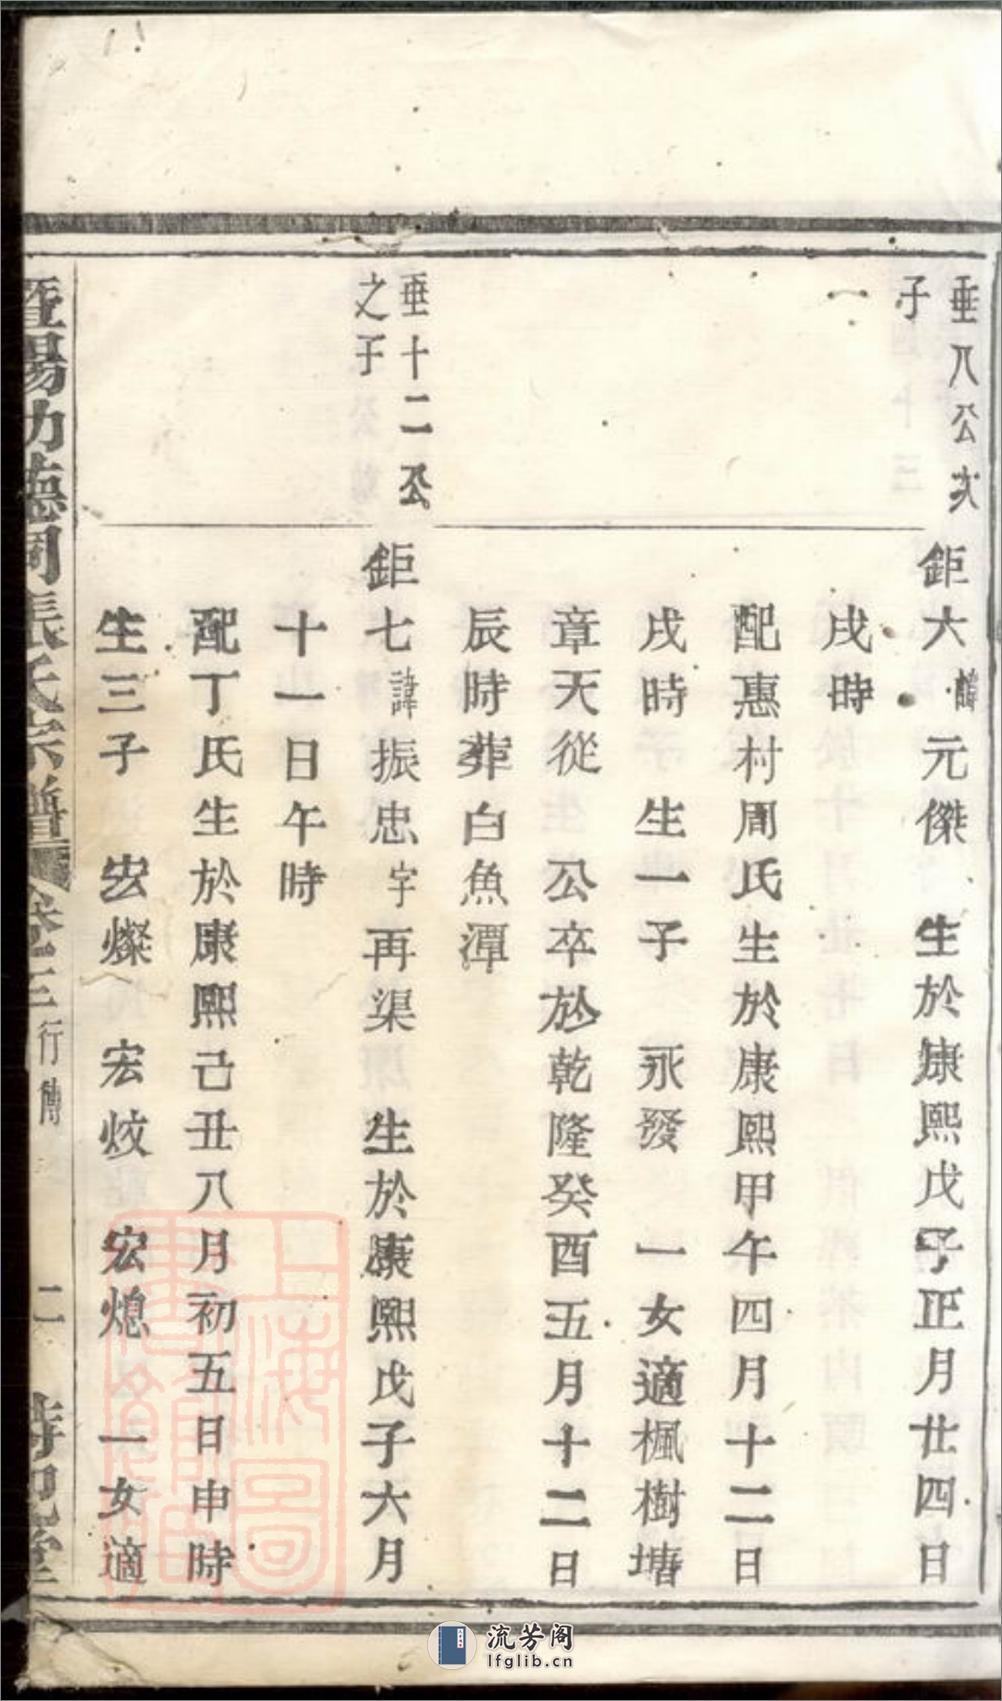 垂八公次
子一
鉅六諱元傑 生於康熙戊子正月廿四日
戌時
配惠村周氏生於康熙甲午四月十二日
戌時 生一子 永發 一女適楓樹塘
章天從 公卒於乾隆癸酉五月十二日
辰時葬白魚潭
垂十二公
之子
鉅七諱振忠字再渠 生於康熙戊子六月
十一日午時
配丁氏生於康熙己丑八月初五日申時
生三子 宏燦 宏炆 宏熄 一女適
暨陽 張氏宗譜 卷三 行傳 二
上海圖書館藏
流芳阁
lfglib.cn